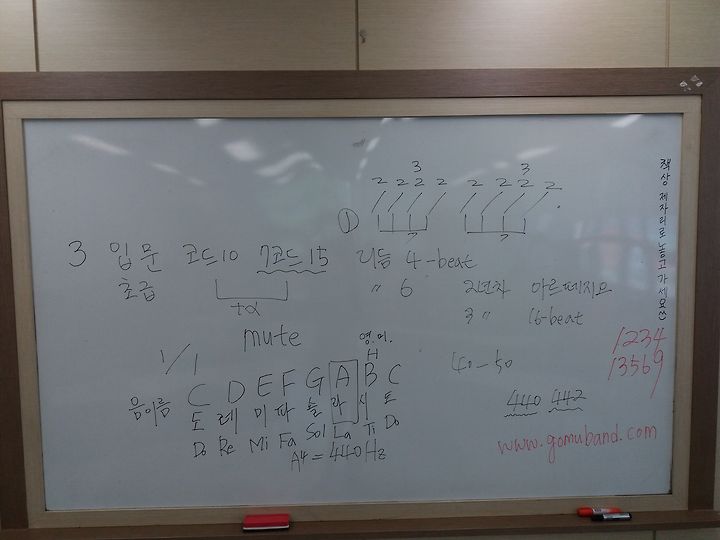 3 3
2 2 2 2 2 2 2 2
①
3 입문 코드10 7코드15 리듬 4-beat
초급 +α 〃 6 2년차 아르페지오
3 〃 16-beat
mute
영.미.
H
1/1
40-50
음이름 C D E F G A B C
도 레 미 파 솔 라 시 도
Do Re Mi Fa Sol La Ti Do
A4 = 440Hz
440 442
1234
13569
www.gomuband.com
책상 제자리로 놓고 가세요